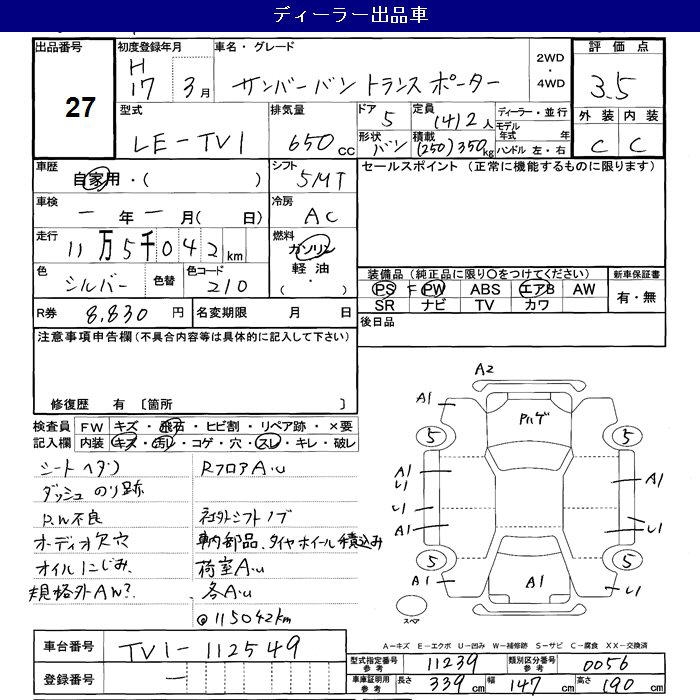 ディーラー出品車
出品番号 27
初度登録年月 H17 3月
車名・グレード サンバーバン トランスポーター
2WD・4WD
評価点 3.5
型式 LE-TV1
排気量 650cc
ドア 5
定員 (4)2人
形状 バン
積載 (250)350kg
ディーラー・並行
モデル年式 年
ハンドル 左・右
外装 C 内装 C
車歴 自家用・( )
シフト 5MT
セールスポイント (正常に機能するものに限ります)
車検 一年一月( 日)
冷房 AC
走行 11万5千042km
燃料 ガソリン 軽油 ( ・ )
色 シルバー 色替
色コード 210
装備品 (純正品に限り○をつけてください)
新車保証書 有・無
PS F PW ABS エアB AW
SR ナビ TV カワ
R券 8,830円
名変期限 月 日
後日品
注意事項申告欄 (不具合内容等は具体的に記入して下さい)
修復歴 有 〔箇所 〕
検査員記入欄
FW キズ・飛石・ヒビ割・リペア跡・×要
内装 キズ・汚れ・コゲ・穴・スレ・キレ・破レ
シートヘタリ RフロアA.u
ダッシュ のり跡
P.W不良 社外シフトノブ
オーディオ欠穴 車内部品、タイヤホイール積込み
オイルにじみ 荷室A.u
規格外AW? 各A.u
@115042km
A2
A1
Pハゲ
5 5
A1 U1 A1
U1 A1 U1
5 5
A1 A1 U1
スペア
A-キズ E-エクボ U-凹み W-補修跡 S-サビ C-腐食 XX-交換済
車台番号 TV1-112549
登録番号 一
型式指定番号 参考 11239
類別区分番号 参考 0056
車庫証明用 参考 長さ 339cm 幅 147cm 高さ 190cm